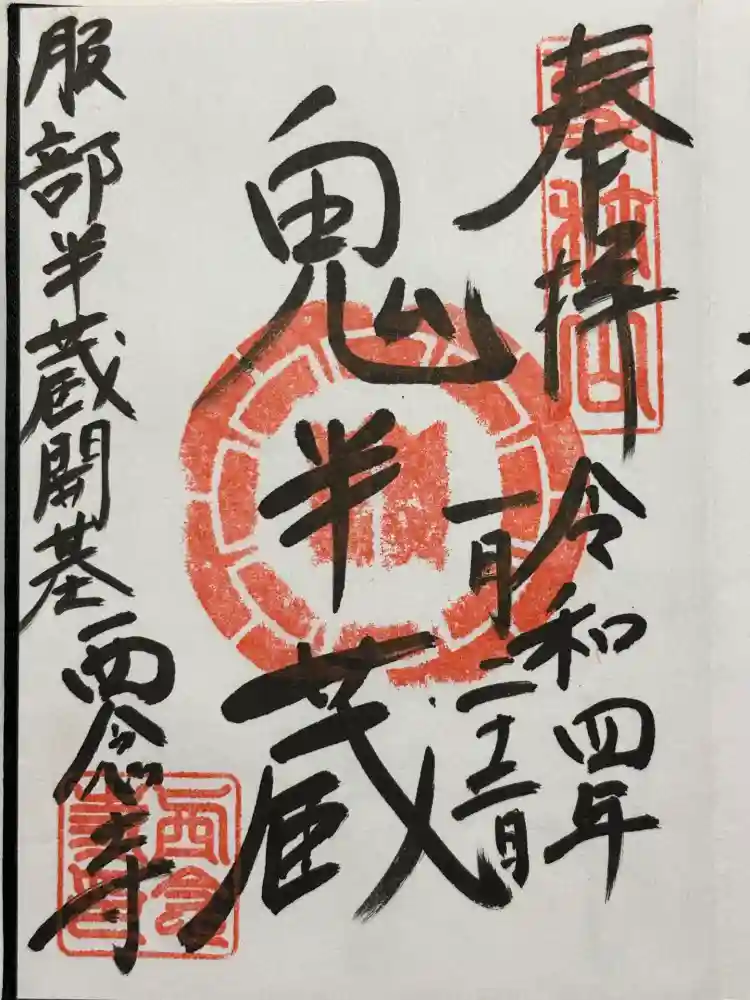 奉拝
令和四年
一月二十二日
鬼半蔵
服部半蔵開基
西念寺